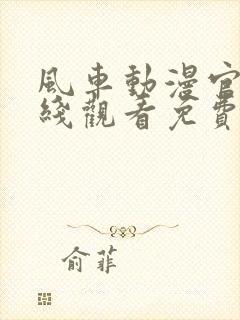 風車動漫官
綫觀看免費
俞菲